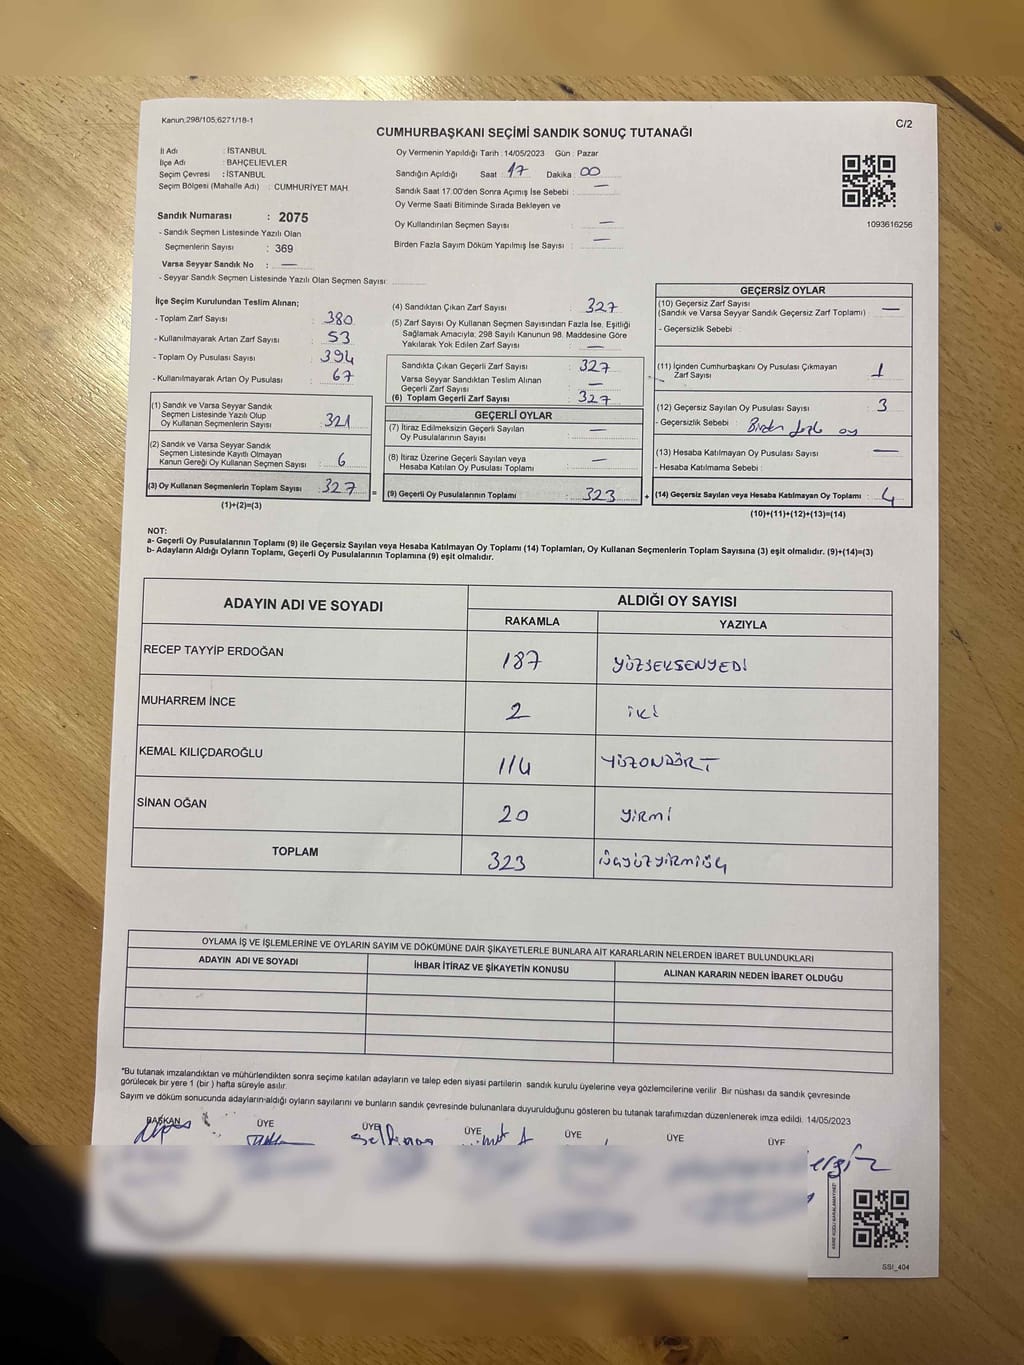 Kanun,298/105,6271/18-1
C/2
CUMHURBAŞKANI SEÇİMİ SANDIK SONUÇ TUTANAĞI
İl Adı : İSTANBUL
İlçe Adı : BAHÇELİEVLER
Seçim Çevresi : İSTANBUL
Seçim Bölgesi (Mahalle Adı) : CUMHURİYET MAH.
Sandık Numarası : 2075
- Sandık Seçmen Listesinde Yazılı Olan
Seçmenlerin Sayısı : 369
Varsa Seyyar Sandık No : —
- Seyyar Sandık Seçmen Listesinde Yazılı Olan Seçmen Sayısı:
Oy Vermenin Yapıldığı Tarih : 14/05/2023 Gün : Pazar
Sandığın Açıldığı Saat : 17 Dakika : 00
Sandık Saat 17:00'den Sonra Açımış İse Sebebi : —
Oy Verme Saati Bitiminde Sırada Bekleyen ve
Oy Kullandırılan Seçmen Sayısı : —
Birden Fazla Sayım Döküm Yapılmış İse Sayısı : —
1093616256
İlçe Seçim Kurulundan Teslim Alınan;
- Toplam Zarf Sayısı : 380
- Kullanılmayarak Artan Zarf Sayısı : 53
- Toplam Oy Pusulası Sayısı : 394
- Kullanılmayarak Artan Oy Pusulası : 67
(1) Sandık ve Varsa Seyyar Sandık
Seçmen Listesinde Yazılı Olup
Oy Kullanan Seçmenlerin Sayısı : 321
(2) Sandık ve Varsa Seyyar Sandık
Seçmen Listesinde Kayıtlı Olmayan
Kanun Gereği Oy Kullanan Seçmen Sayısı : 6
(3) Oy Kullanan Seçmenlerin Toplam Sayısı : 327
(1)+(2)=(3)
(4) Sandıktan Çıkan Zarf Sayısı : 327
(5) Zarf Sayısı Oy Kullanan Seçmen Sayısından Fazla İse, Eşitliği
Sağlamak Amacıyla; 298 Sayılı Kanunun 98. Maddesine Göre
Yakılarak Yok Edilen Zarf Sayısı : —
Sandıkta Çıkan Geçerli Zarf Sayısı : 327
Varsa Seyyar Sandıktan Teslim Alınan
Geçerli Zarf Sayısı : —
(6) Toplam Geçerli Zarf Sayısı : 327
GEÇERLİ OYLAR
(7) İtiraz Edilmeksizin Geçerli Sayılan
Oy Pusulalarının Sayısı : —
(8) İtiraz Üzerine Geçerli Sayılan veya
Hesaba Katılan Oy Pusulası Toplamı : —
= (9) Geçerli Oy Pusulalarının Toplamı : 323
GEÇERSİZ OYLAR
(10) Geçersiz Zarf Sayısı
(Sandık ve Varsa Seyyar Sandık Geçersiz Zarf Toplamı) : —
- Geçersizlik Sebebi :
(11) İçinden Cumhurbaşkanı Oy Pusulası Çıkmayan
Zarf Sayısı : 1
(12) Geçersiz Sayılan Oy Pusulası Sayısı : 3
- Geçersizlik Sebebi : Birden fazla oy
(13) Hesaba Katılmayan Oy Pusulası Sayısı : —
- Hesaba Katılmama Sebebi :
+ (14) Geçersiz Sayılan veya Hesaba Katılmayan Oy Toplamı : 4
(10)+(11)+(12)+(13)=(14)
NOT:
a- Geçerli Oy Pusulalarının Toplamı (9) ile Geçersiz Sayılan veya Hesaba Katılmayan Oy Toplamı (14) Toplamları, Oy Kullanan Seçmenlerin Toplam Sayısına (3) eşit olmalıdır. (9)+(14)=(3)
b- Adayların Aldığı Oyların Toplamı, Geçerli Oy Pusulalarının Toplamına (9) eşit olmalıdır.
ADAYIN ADI VE SOYADI
ALDIĞI OY SAYISI
RAKAMLA YAZIYLA
RECEP TAYYİP ERDOĞAN 187 YÜZSEKSENYEDİ
MUHARREM İNCE 2 İKİ
KEMAL KILIÇDAROĞLU 114 YÜZONDÖRT
SİNAN OĞAN 20 YİRMİ
TOPLAM 323 ÜÇYÜZYİRMİÜÇ
OYLAMA İŞ VE İŞLEMLERİNE VE OYLARIN SAYIM VE DÖKÜMÜNE DAİR ŞİKAYETLERLE BUNLARA AİT KARARLARIN NELERDEN İBARET BULUNDUKLARI
ADAYIN ADI VE SOYADI İHBAR İTİRAZ VE ŞİKAYETİN KONUSU ALINAN KARARIN NEDEN İBARET OLDUĞU
*Bu tutanak imzalandıktan ve mühürlendikten sonra seçime katılan adayların ve talep eden siyasi partilerin sandık kurulu üyelerine veya gözlemcilerine verilir. Bir nüshası da sandık çevresinde
görülecek bir yere 1 (bir ) hafta süreyle asılır.
Sayım ve döküm sonucunda adayların aldığı oyların sayılarını ve bunların sandık çevresinde bulunanlara duyurulduğunu gösteren bu tutanak tarafımızdan düzenlenerek imza edildi. 14/05/2023
BAŞKAN ÜYE ÜYE ÜYE ÜYE ÜYE ÜYE
SSI_404